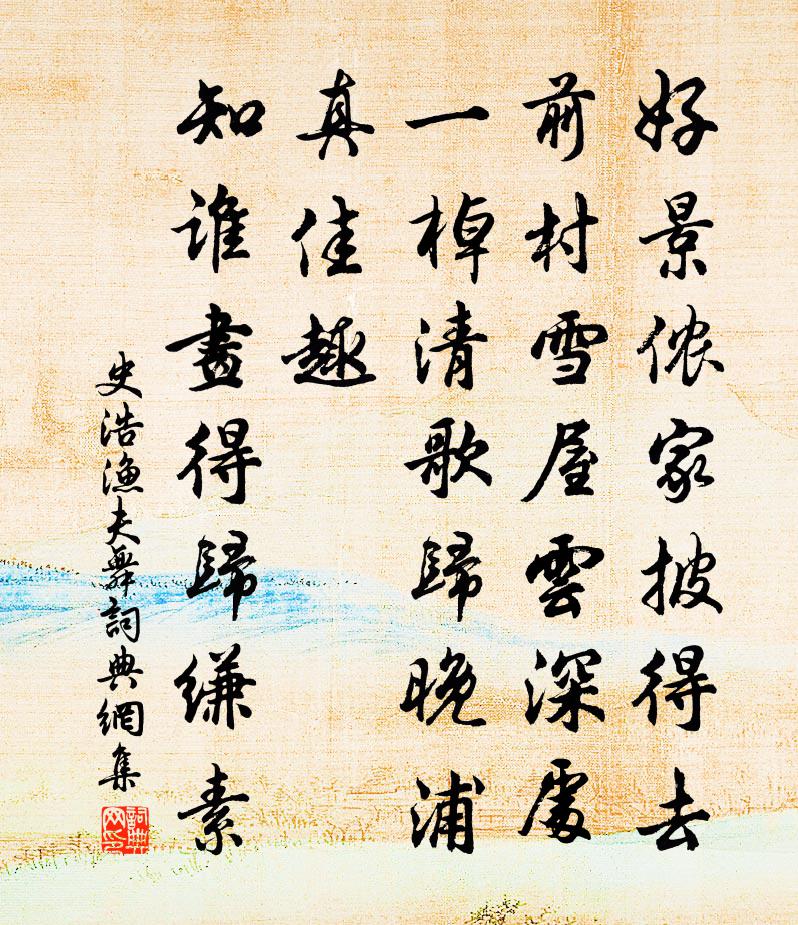 好景侬家披得去
前村雪屋雲深處
一棹清歌歸晚浦
真佳趣
知谁畫得歸缣素
史浩漁夫舞詞典網集
詞典网印